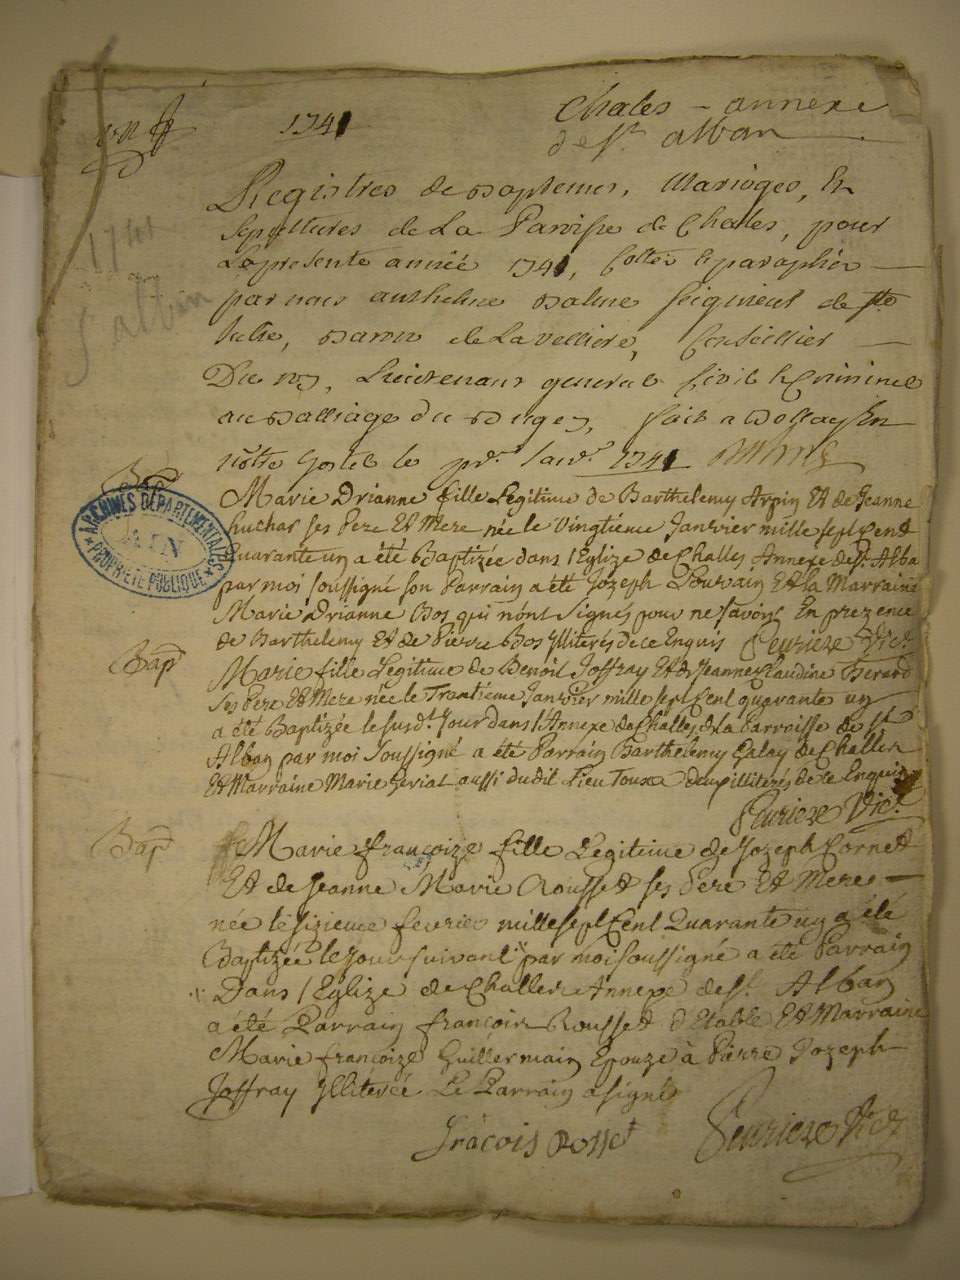 1741
Chales - annexe
de St. alban
1741
S albin
Registres de Baptemes, Mariages, Et
Sepultures de La Paroisse de Chales, pour
La presente année 1741, Cottée & paraphée
par nous anthelme Balme Seigneur de Ste
Julie, Baron de La velliere, Conseillier
Du roy, Lieutenant general Civil & Criminel
au Balliage du Bugey, fait a Belley En
nôtre hostel le pr. Janv. 1741 Balme
ARCHIVES DÉPARTEMENTALES
AIN
PROPRIÉTÉ PUBLIQUE
Marie Drianne fille Légitime de Barthelemy Arpin Et de Jeanne
ses Pere Et Mere née le Vingtième Janvier mille sept Cent
quarante un a été Baptizée dans l'Eglize de Challes Annexe de St. Alba
par moi soussigné son Parrain a été Jozeph Et la Marraine
Marie Drianne Bos qui n'ont signés pour ne savoir En prezence
de Barthelemy Et de Pierre Bos Illiterés de ce Enquis Peurieze Vic.
Bap
Marie fille Légitime de Benoit Joffray Et de Jeanne Claudine Berard
ses Pere Et Mere née le Trantième Janvier mille sept Cent quarante un
a été Baptizée le susd. Jour dans l'Annexe de Challes de la Parroisse de St
Alban par moi Soussigné a été Parrain Barthélemy Galay de Challes
Et Marraine Marie aussi dudit Lieu Toux illiterés de ce Enquis
Peurieze Vic.
Bap
Marie françoize fille Légitime de Jozeph Cornet
Et de Jeanne Marie Rousset ses Pere Et Mere
née le sizieme fevrier mille sept Cent Quarante un a été
Baptizée le jour suivant par moi soussigné a été Parrain
Dans l'Eglize de Challes Annexe de St. Alban
a été Parrain françois Rousset d'Etable Et Marraine
Marie françoize Guillermain Epouze à Pierre Jozeph
Joffray Illiterée Le Parrain a signé
frācois Rosset Peurieze Vic.